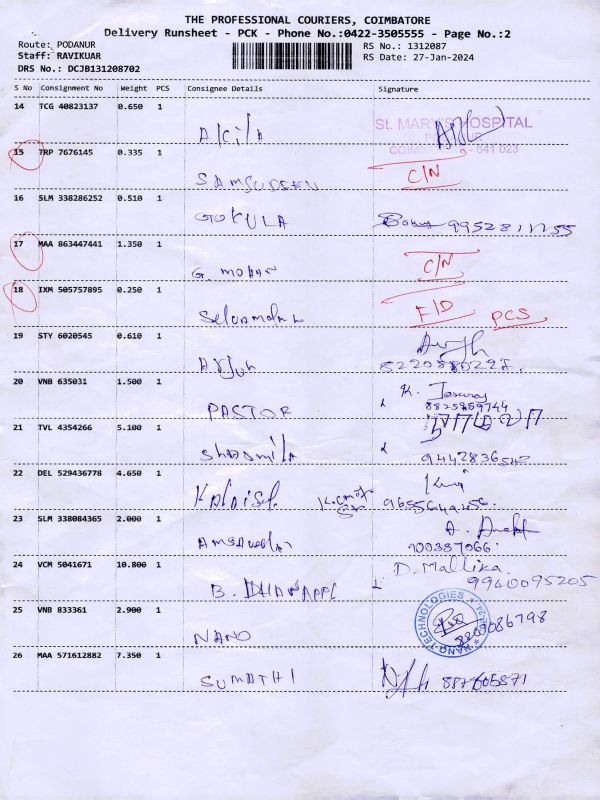 THE PROFESSIONAL COURIERS, COIMBATORE
Delivery Runsheet - PCK - Phone No.:0422-3505555 - Page No.:2
Route: PODANUR
RS No.: 1312087
Staff: RAVIKUAR
RS Date: 27-Jan-2024
DRS No.: DCJB131208702
S No Consignment No Weight PCS Consignee Details Signature
14 TCG 40823137 0.650 1
St. MARY'S HOSPITAL
AKilA
15 TRP 7676145 0.335 1
641 023
C/N
SAMSUDEEN
16 SLM 338286252 0.510 1
GOKULA
17 MAA 863447441 1.350 1
G. MOHAN
C/N
18 IXM 505757895 0.250 1
F/D PCS
19 STY 6020545 0.610 1
Arjun
20 VNB 635031 1.500 1
PASTOR
K. Jesuraj
8825859744
21 TVL 4354266 5.100 1
Sharmila
22 DEL 529436778 4.650 1
9655649456
23 SLM 338084365 2.000 1
900387066
24 VCM 5041671 10.800 1
D. Mallika
9940095205
25 VNB 833361 2.900 1
NANO TECHNOLOGIES
NANO
26 MAA 571612882 7.350 1
SUMATHI